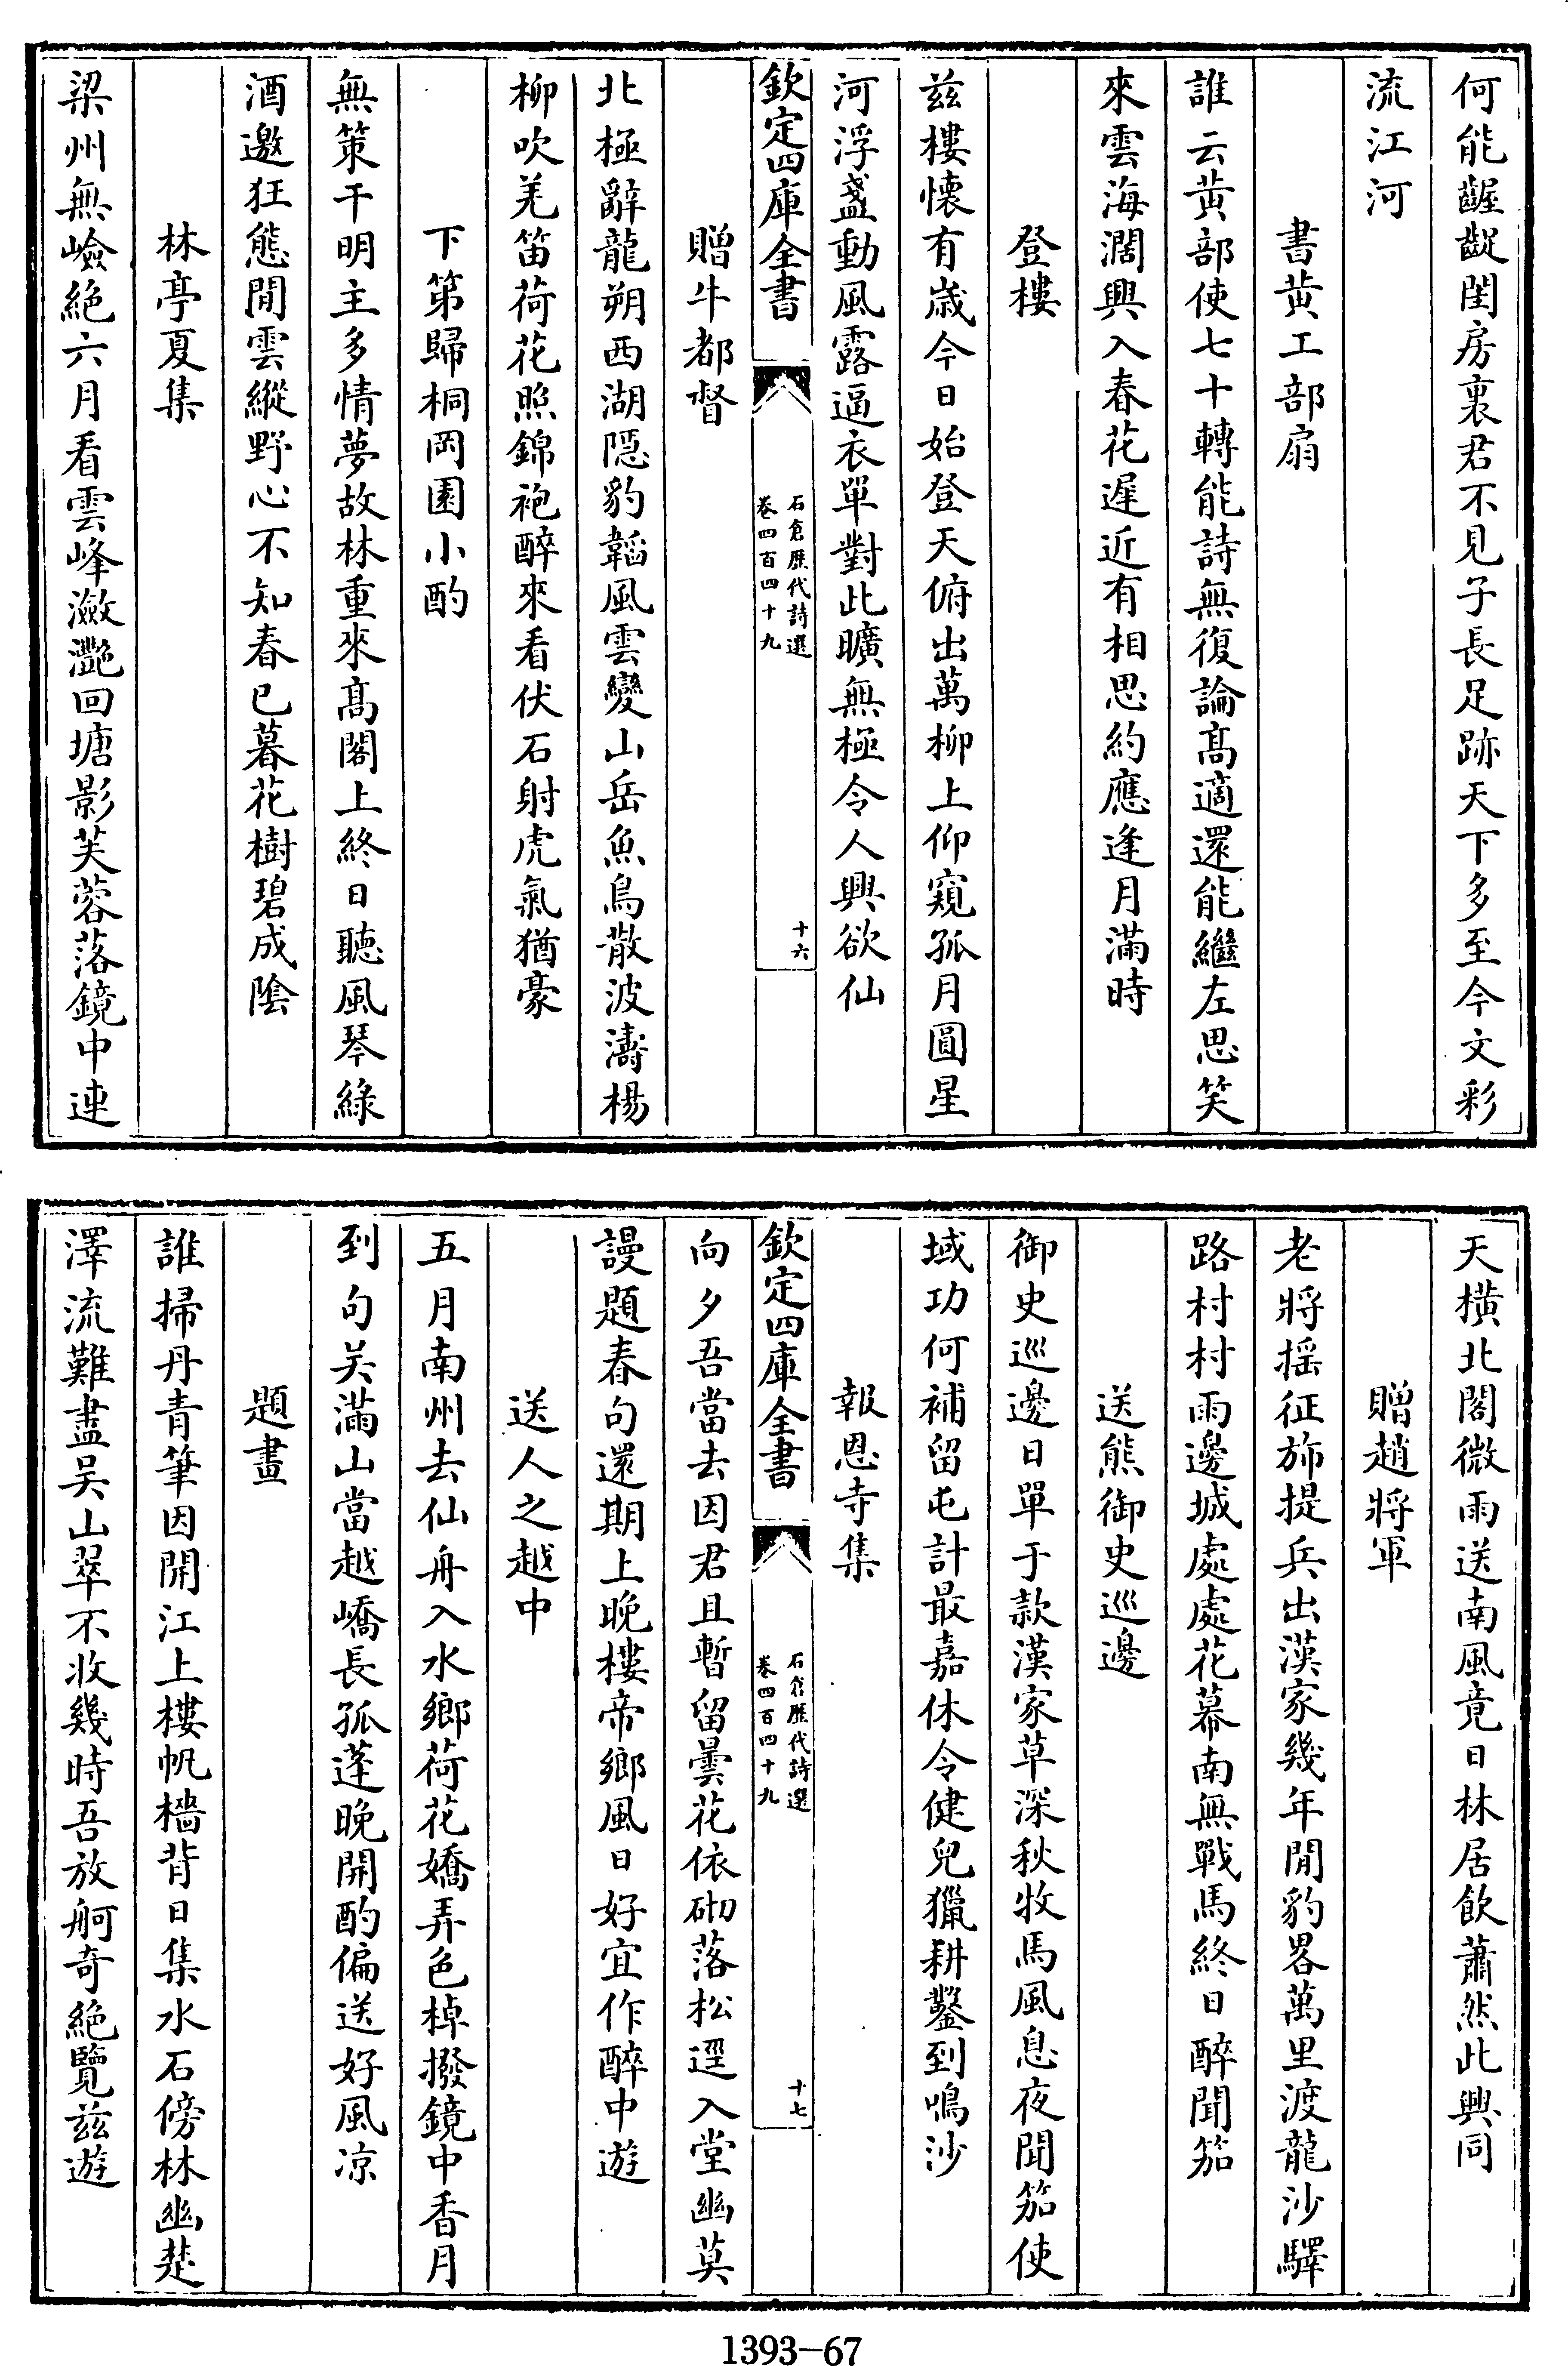 何能齷齪閨房裏君不見子長足跡天下多至今文彩
流江河
書黄工部扇
誰云黄部使七十轉能詩無復論髙適還能繼左思笑
來雲海濶興入春花遲近有相思約應逢月滿時
登樓
兹樓懐有歳今日始登天俯出萬柳上仰窺孤月圓星
河浮盞動風露逼衣單對此曠無極令人興欲仙
欽定四庫全書
石倉歴代詩選
卷四百四十九
十六
贈牛都督
北極辭龍朔西湖隠豹韜風雲變山岳魚鳥散波濤楊
柳吹羌笛荷花照錦袍醉來看伏石射虎氣猶豪
下第歸桐岡園小酌
無策干明主多情夢故林重來髙閣上終日聽風琴綠
酒邀狂態閒雲縱野心不知春已暮花樹碧成隂
林亭夏集
梁州無嶮絶六月看雲峰瀲灔回塘影芙蓉落鏡中連
天横北閣微雨送南風竟日林居飲蕭然此興同
贈趙將軍
老將揺征斾提兵出漢家幾年閒豹畧萬里渡龍沙驛
路村村雨邊城處處花幕南無戰馬終日醉聞笳
送熊御史巡邊
御史巡邊日單于款漢家草深秋牧馬風息夜聞笳使
域功何補留屯計最嘉休令健兒獵耕鑿到鳴沙
報恩寺集
欽定四庫全書
石倉歴代詩選
卷四百四十九
十七
向夕吾當去因君且暫留曇花依砌落松逕入堂幽莫
謾題春句還期上晚樓帝鄉風日好宜作醉中遊
送人之越中
五月南州去仙舟入水鄉荷花嬌弄色棹撥鏡中香月
到句吳滿山當越嶠長孤蓬晚開酌偏送好風凉
題畫
誰掃丹青筆因開江上樓帆檣背日集水石傍林幽楚
澤流難盡吳山翠不收幾時吾放舸奇絶覽兹遊
1393—67